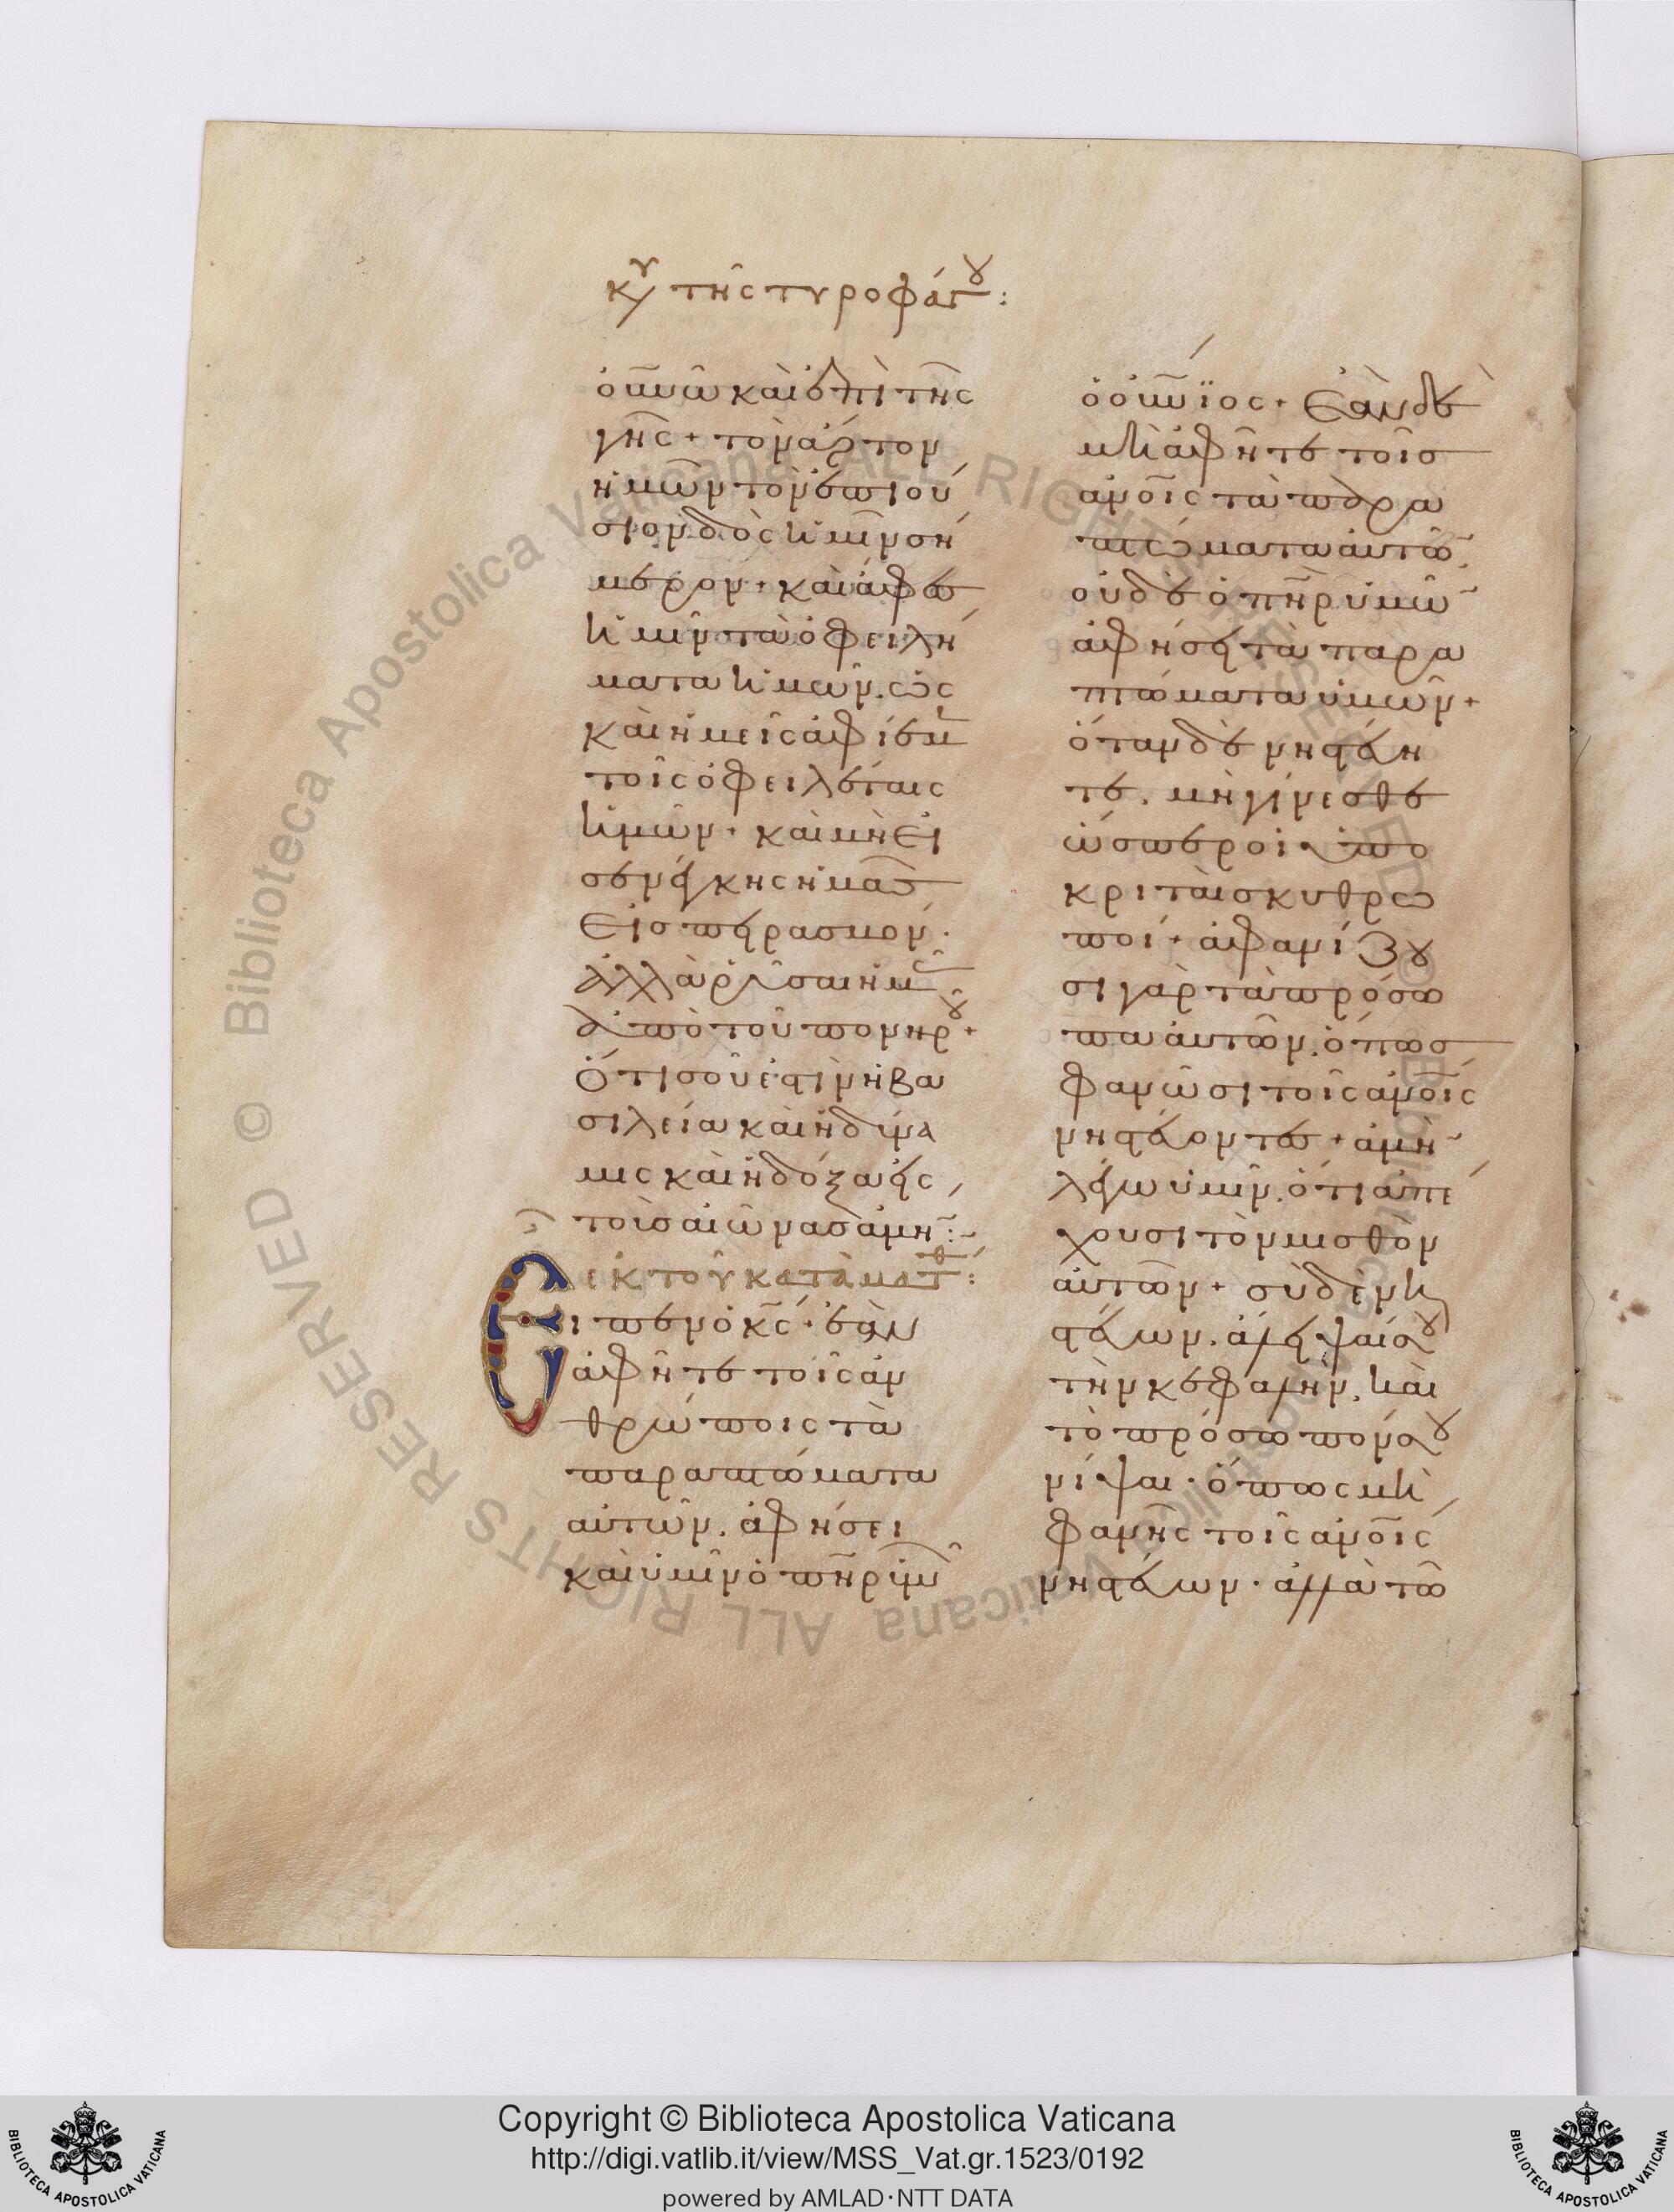 κυ της τυροφάγου:
οὐνῶ καὶ ἐπὶ τῆς
γῆς + τὸν ἄρτον
ἡμῶν τὸν ἐπιού
σιον δὸς ἡμῖν σή
μερον + καὶ ἄφες
ἡμῖν τὰ ὀφειλή
ματα ἡμῶν. ὡς
καὶ ἡμεῖς ἀφίεμ
τοῖς ὀφειλέταις
ἡμῶν + καὶ μὴ εἰ
σενέγκης ἡμᾶς
εἰς πειρασμόν.
ἀλλὰ ῥῦσαι ἡμᾶς
ἀπὸ τοῦ πονηροῦ +
Ὅτι σοῦ ἐστιν ἡ βα
σιλεία καὶ ἡ δύνα
μις καὶ ἡ δόξα εἰς
τοὺς αἰῶνας ἀμήν:
ἐκ τοῦ κατὰ Ματθ:
Εἶπεν ὁ κς· ἐὰν
ἀφῆτε τοῖς ἀν
θρώποις τὰ
παραπτώματα
αὐτῶν. ἀφήσει
καὶ ὑμῖν ὁ πηρ ὑμῶν
ὁ οὐνιος + Ἐὰν δὲ
μὴ ἀφῆτε τοῖς
ανοις τὰ παρα
πτώματα αὐτῶν
οὐδὲ ὁ πηρ ὑμῶν
ἀφήσει τὰ παρα
πτώματα ὑμῶν +
ὅταν δὲ νηστεύη
τε, μὴ γίνεσθε
ὥσπερ οἱ ὑπο
κριταὶ σκυθρω
ποί + ἀφανίζου
σι γὰρ τὰ πρόσω
πα αὐτῶν. ὅπως
φανῶσι τοῖς ανοις
νηστεύοντες + ἀμὴν
λέγω ὑμῖν. ὅτι ἀπέ
χουσι τὸν μισθὸν
αὐτῶν + σὺ δὲ νη
στεύων. ἄλειψαί σου
τὴν κεφαλὴν, καὶ
τὸ πρόσωπόν σου
νίψαι. ὅπως μὴ
φανῆς τοῖς ανοις
νηστεύων. ἀλλὰ τῶ
Copyright © Biblioteca Apostolica Vaticana
http://digi.vatlib.it/view/MSS_Vat.gr.1523/0192
powered by AMLAD·NTT DATA